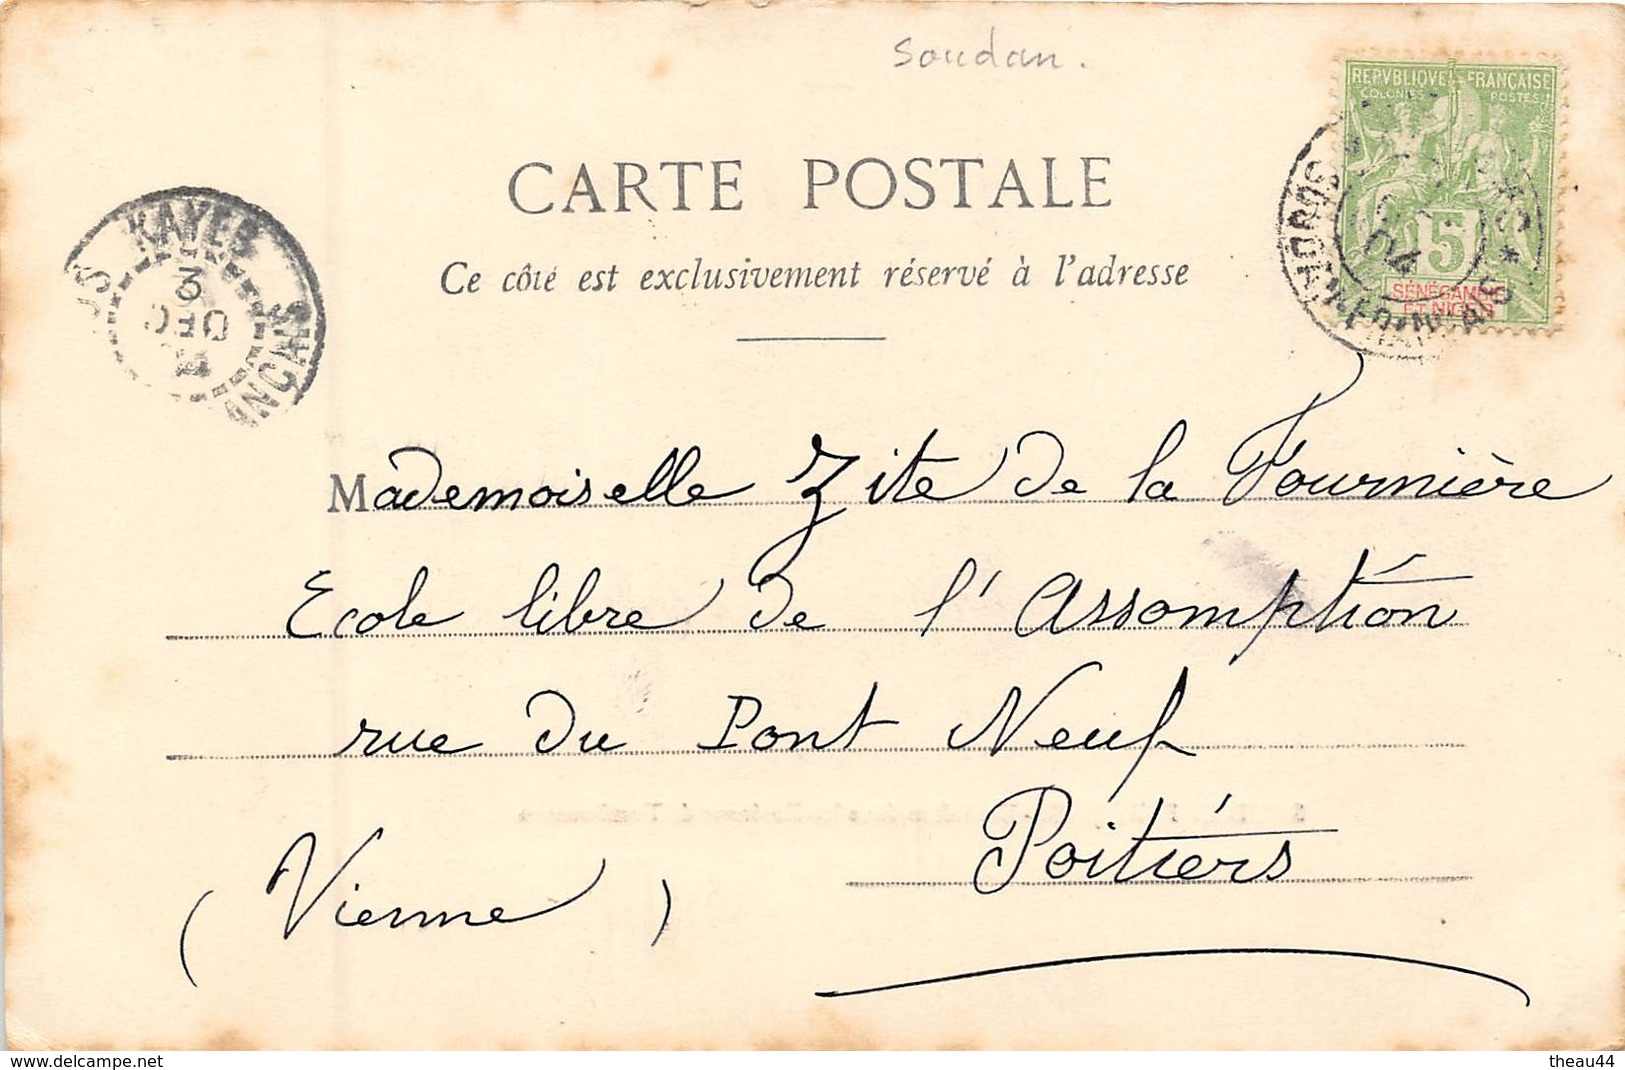 Soudan.
REPVBLIQVE FRANÇAISE
COLONIES POSTES
5
SÉNÉGAMBIE
ET NIGER
CARTE POSTALE
Ce côté est exclusivement réservé à l'adresse
KAYES
3
DEC
Mademoiselle Zite de la Fournière
Ecole libre de l'Assomption
rue du Pont Neuf
Poitiérs
(Vienne)
www.delcampe.net
theau44